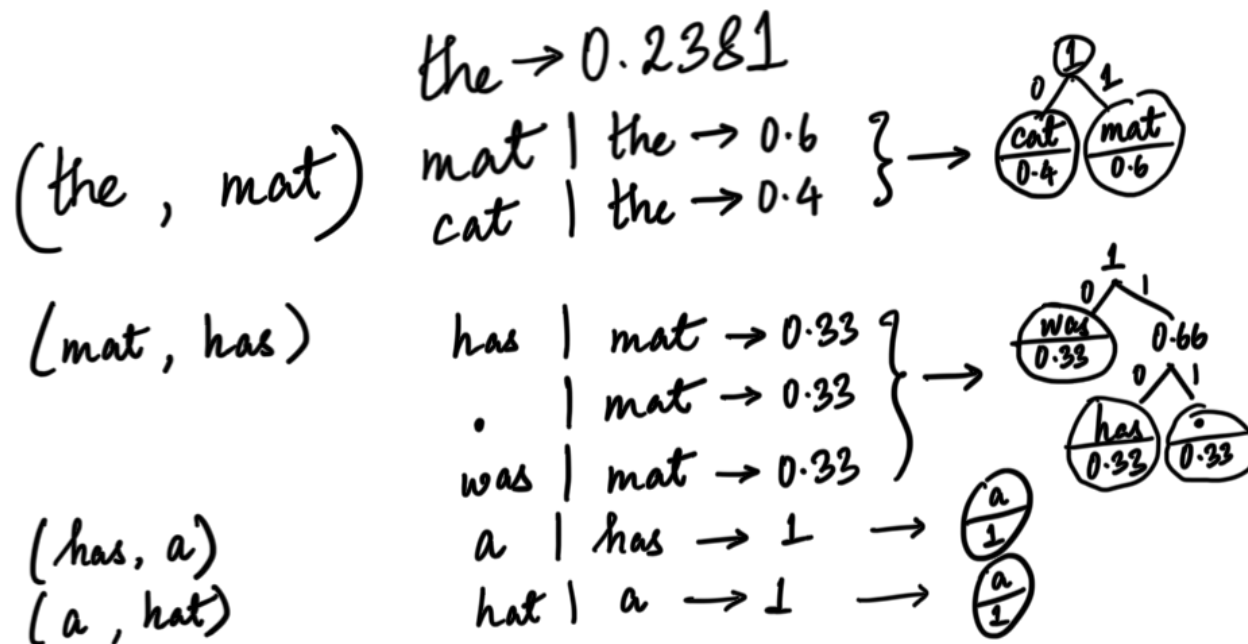 the → 0.2381
(the , mat) mat | the → 0.6
cat | the → 0.4
} →
1
0 1
cat mat
0.4 0.6
(mat , has) has | mat → 0.33
. | mat → 0.33
was | mat → 0.33
} →
1
0 1
was 0.66
0.33
0 1
has .
0.33 0.33
(has, a) a | has → 1 → a
1
(a , hat) hat | a → 1 → a
1